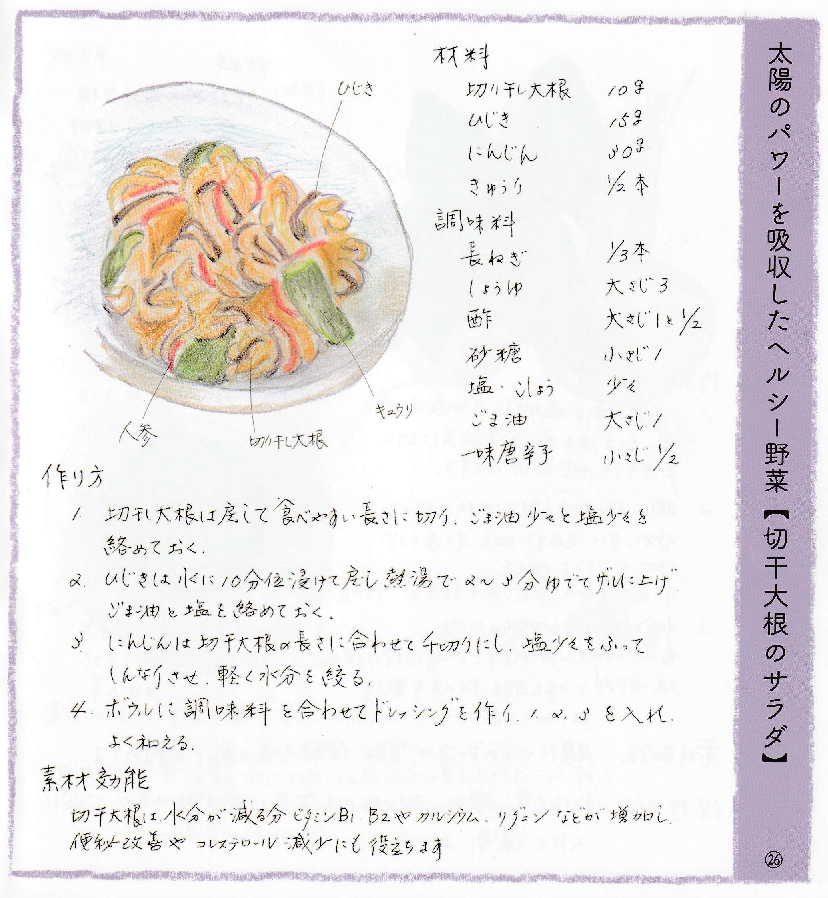 太陽のパワーを吸収したヘルシー野菜【切干大根のサラダ】
㉖
ひじき
人参
切り干し大根
キュウリ
材料
切り干し大根 10g
ひじき 15g
にんじん 30g
きゅうり 1/2本
調味料
長ねぎ 1/3本
しょうゆ 大さじ3
酢 大さじ1と1/2
砂糖 小さじ1
塩・こしょう 少々
ごま油 大さじ1
一味唐辛子 小さじ1/2
作り方
1. 切干し大根は戻して食べやすい長さに切り、ごま油少々と塩少々を
絡めておく。
2. ひじきは水に10分位浸けて戻し熱湯で2〜3分ゆでてザルに上げ
ごま油と塩を絡めておく。
3. にんじんは切干大根の長さに合わせて千切りにし、塩少々をふって
しんなりさせ、軽く水分を絞る。
4. ボウルに調味料を合わせてドレッシングを作り、1、2、3を入れ、
よく和える。
素材効能
切干大根は、水分が減る分ビタミンB1、B2やカルシウム、リグニンなどが増加し、
便秘改善やコレステロール減少にも役立ちます